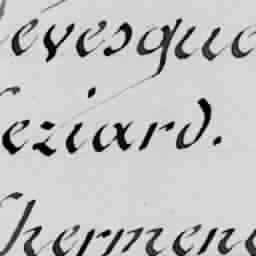 levesque
leziard.
lhermene